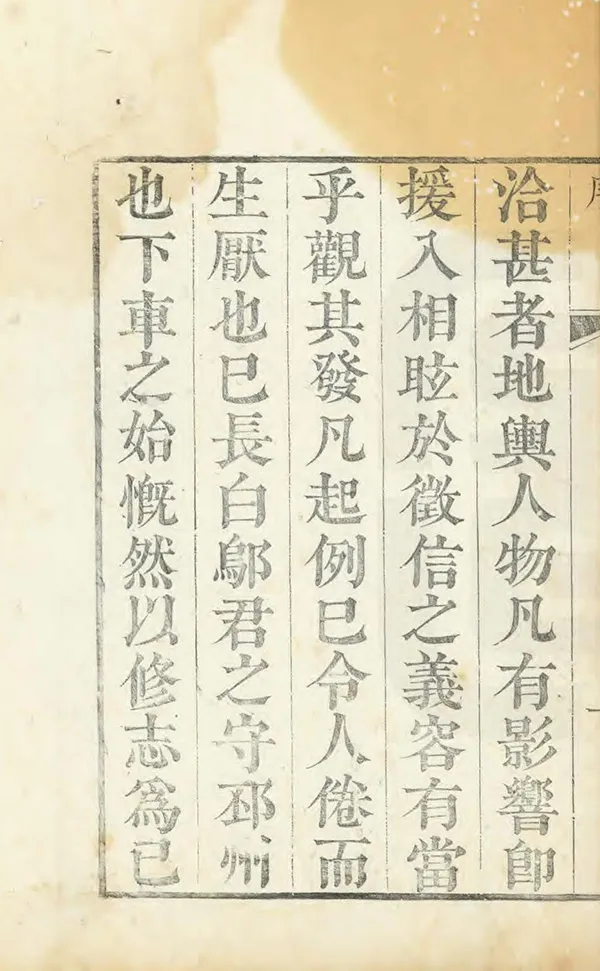 洽甚者地輿人物凡有影響卽
援入相眩於徵信之義容有當
乎觀其發凡起例已令人倦而
生厭也已長白鄔君之守邳州
也下車之始慨然以修志爲已